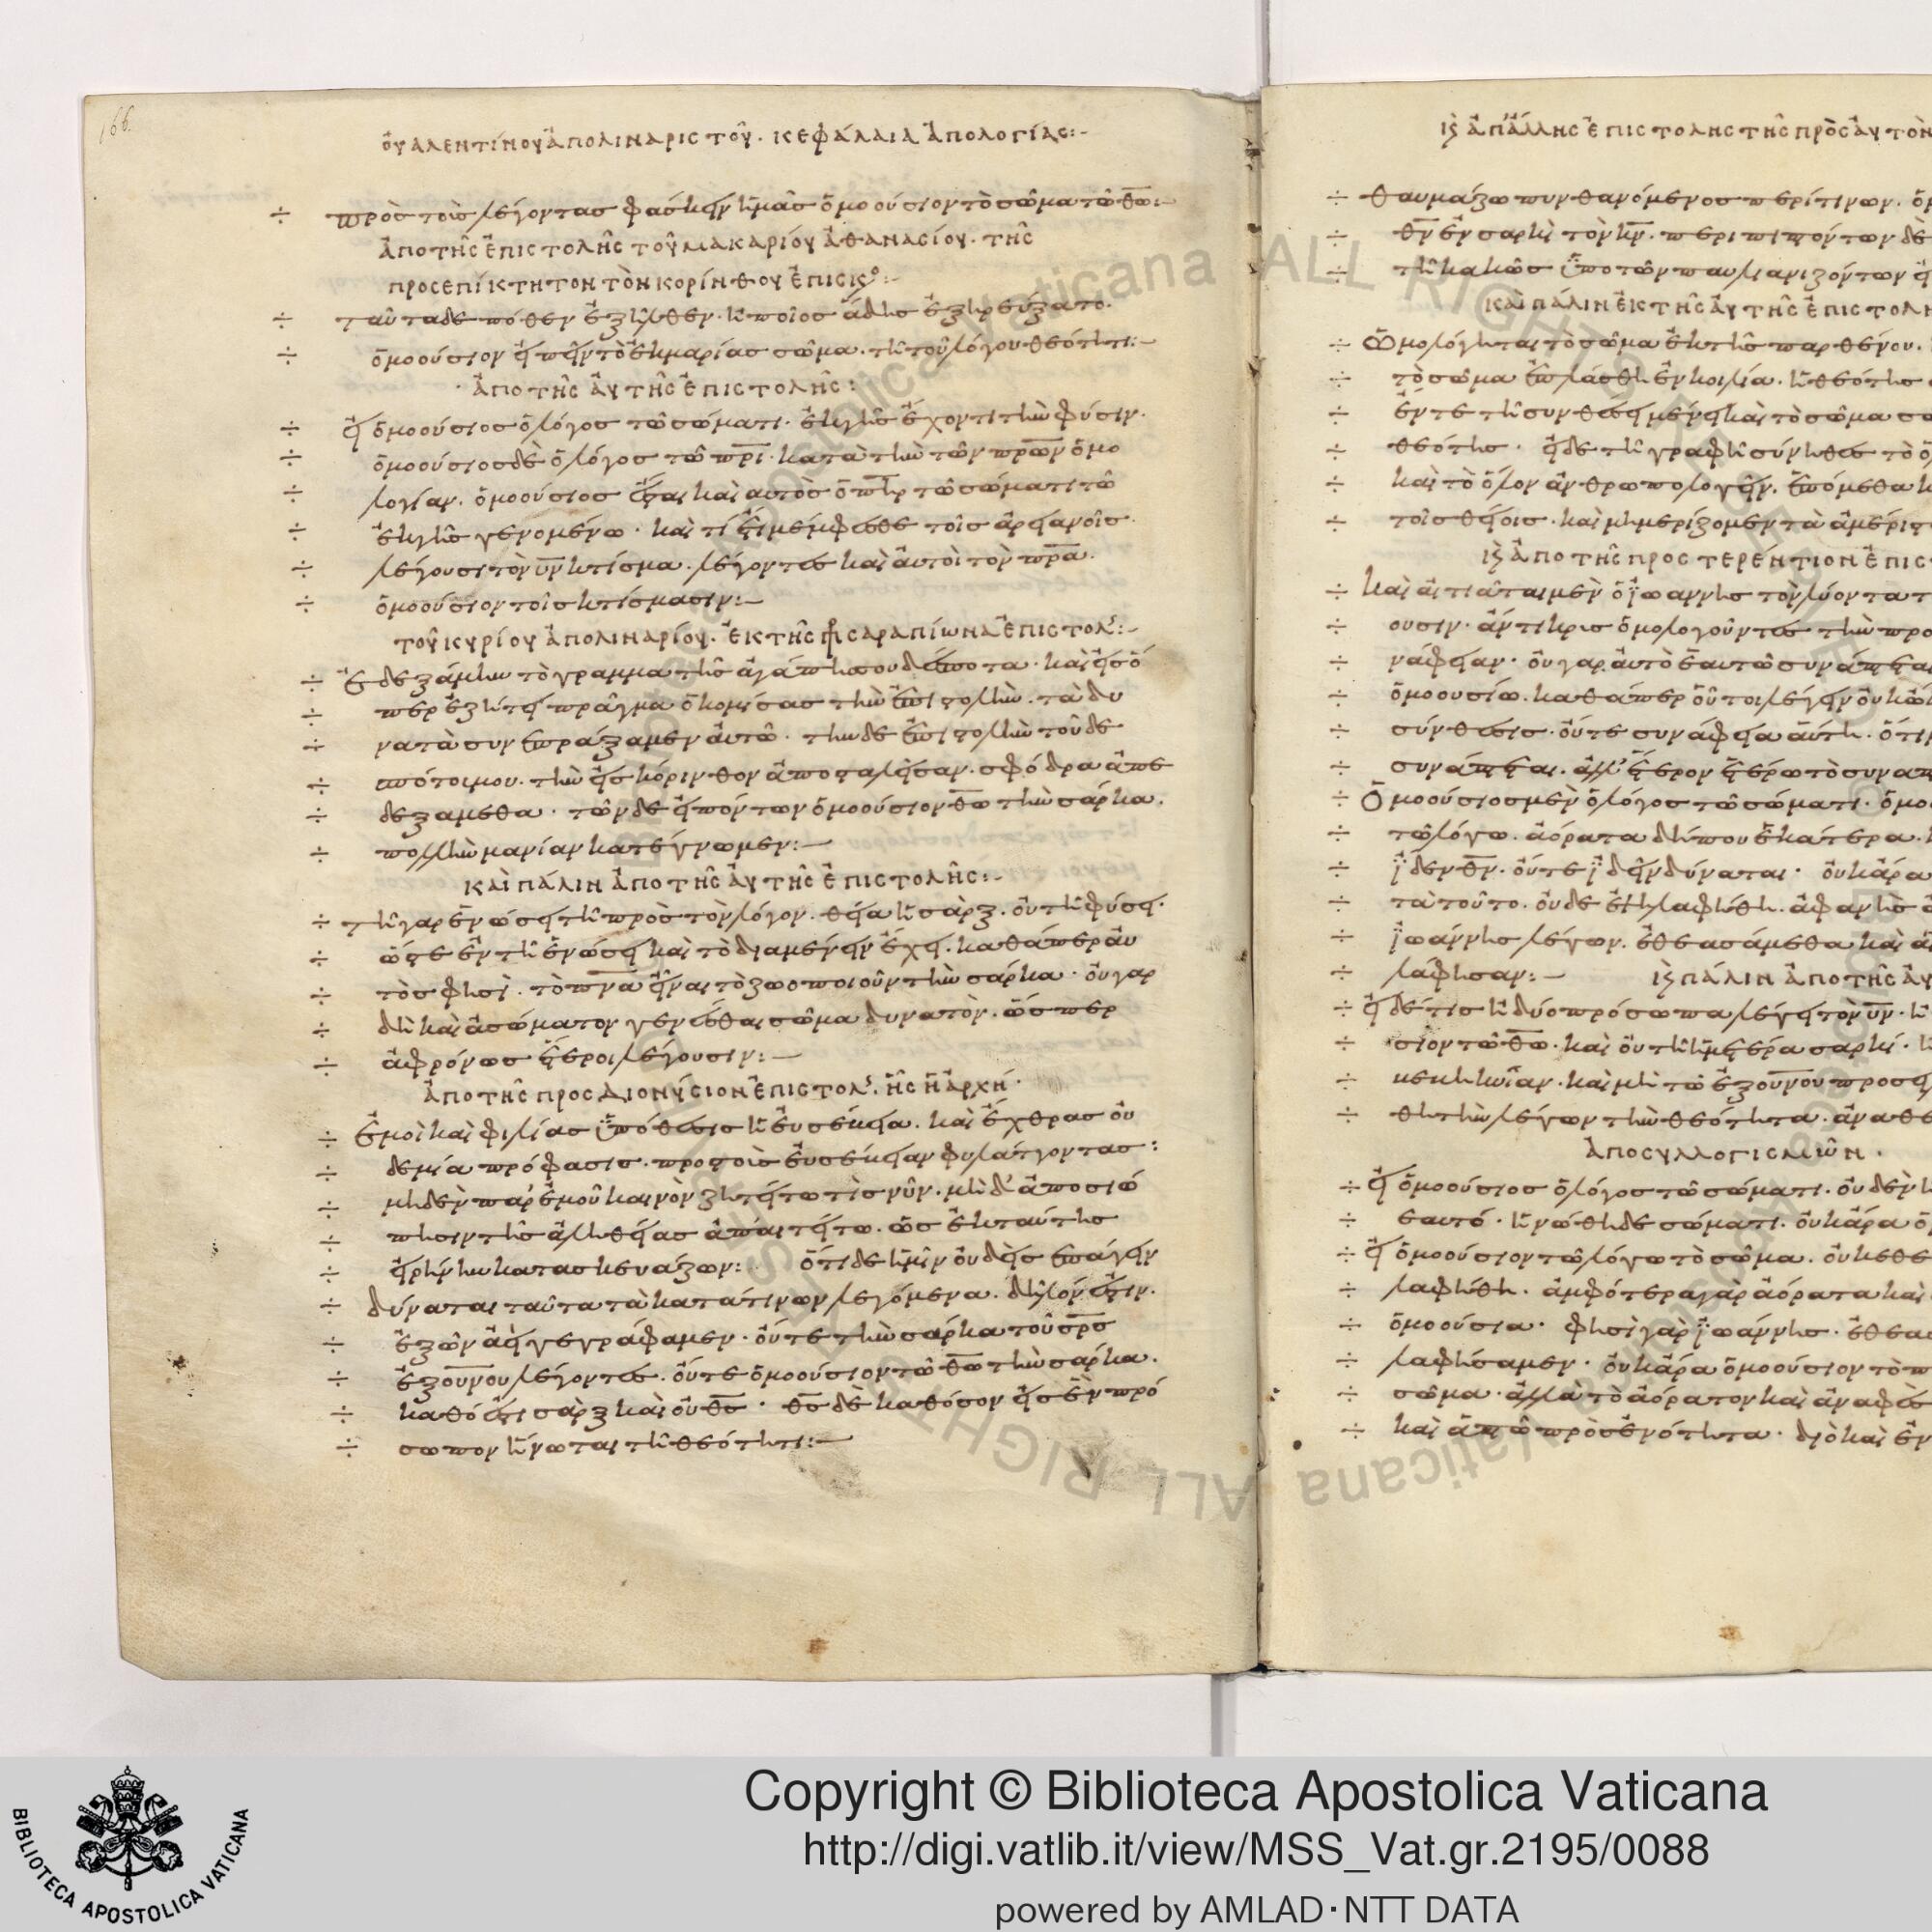 166.
ὀυαλεντίνου ἀπολιναριστοῦ. κεφάλαια ἀπολογίας:-
πρὸς τοὺς λέγοντας φάσκειν ἡμᾶς ὁμοούσιον τὸ σῶμα τῶ θ̅ω̅:-
ἀπὸ τῆς ἐπιστολῆς τοῦ μακαρίου ἀθανασίου. τῆς
προς επίκτητον τὸν κορίνθου ἐπίσκο:-
ταῦτα δε πόθεν ἐξῆλθεν. ἢ ποῖος ἅδης ἐξηρεύξατο.
ὁμοούσιον εἰπεῖν τὸ ἐκ μαρίας σῶμα. τῆ τοῦ λόγου θεότητι:-
ἀπὸ τῆς ἀυτῆς ἐπιστολῆς:
εἰ ὁμοούσιος ὁ λόγος τῶ σώματι. ἐκ γῆς ἔχοντι τὴν φύσιν.
ὁμοούσιος δὲ ὁ λόγος τῶ π̅ρ̅ι̅. κατὰ τὴν τῶν π̅ρ̅ω̅ν̅ ὁμο
λογίαν. ὁμοούσιος ἔσται καὶ αυτὸς ὁ π̅η̅ρ̅ τῶ σώματι τῶ
ἐκ γῆς γενομένω. καὶ τί ἔτι μέμφεσθε τοῖς ἀρειανοῖς
λέγουσι τὸν υ̅ν̅ κτίσμα. λέγοντες καὶ ἀυτοὶ τὸν π̅ρ̅α̅.
ὁμοούσιον τοῖς κτίσμασιν:-
τοῦ κυρίου ἀπολιναρίου. ἐκ τῆς πρ σαραπίωνα ἐπιστολ:-
ἐδεξάμην τὸ γραμμα τῆς ἀγάπης σου δέσποτα. καὶ εἰς ὅ
περ ἐζήτει πρᾶγμα ὁ κομίσας τὴν ἐπιστολὴν. τὰ δυ
νατὰ συνεπράξαμεν ἀυτῶ. την δε ἐπιστολὴν τοῦ δε
σπότου μου. τὴν εἰς κόρινθον ἀποσταλεῖσαν. σφόδρα ἀπε
δεξαμεθα. τῶν δε εἰπόντων ὁμοούσιον θ̅ω̅ τὴν σάρκα.
πολλὴν μανίαν κατέγνωμεν:-
καὶ πάλιν ἀπὸ τῆς ἀυτῆς ἐπιστολῆς:-
τῆ γαρ ἑνώσει τῆ πρὸς τὸν λόγον. θεία ἡ σὰρξ. ὀυ τῆ φύσει.
ὥστε ἐν τῆ ἑνώσει καὶ τὸ διαμένειν ἔχει. καθάπερ ἀυ
τὸς φησὶ. τὸ π̅ν̅α̅ εἶναι τὸ ζωοποιοῦν τὴν σάρκα. ὀυ γαρ
δὴ καὶ ἀσώματον γενέσθαι σῶμα δυνατὸν. ὥσπερ
ἀφρόνως ἕτεροι λέγουσιν:-
ἀπὸ τῆς προς διονύσιον ἐπιστολ. ἧς ἡ ἀρχή.
ἐμοὶ καὶ φιλίας ὑπόθεσις ἡ ἐυσέβεια. καὶ ἔχθρας ὀυ
δεμία πρόφασις. προς τοὺς ἐυσέβειαν φυλάττοντας:
μηδὲν παρ' ἐμοῦ καινὸν ζητείτω τὶς νῦν. μὴ δ' ἀποσιώ
πησιν τῆς ἀληθείας ἀπαιτείτω. ὡς ἐκ ταύτης
εἰρήνην κατασκευάζων: ὅτι δε ἡμῖν ὀυδεὶς ἐπάγειν
δύναται ταῦτα τὰ κατά τινων λεγόμενα. δῆλόν ἐστιν.
ἐξ ὧν ἀεὶ γεγράφαμεν. ὀύτε τὴν σάρκα τοῦ σ̅ρ̅ς̅
ἐξ ο̅υ̅ν̅ο̅υ̅ λέγοντες. ὀύτε ὁμοούσιον τῶ θ̅ω̅ τὴν σάρκα.
καθό ἐστι σὰρξ καὶ ὀυ θ̅ς̅. θ̅ς̅ δὲ καθόσον εἰς ἓν πρό
σωπον ἥνωται τῆ θεότητι:-
ἀπ' ἄλλης ἐπιστολης τῆς πρὸς ἀυτὸν
θαυμάζω πυνθανόμενος περί τινων.
θ̅ν̅ ἔνσαρκι τὸν κ̅ν̅. περιπιπτόντων δὲ
τῆ κακῶς ὑπο τῶν παυλιανιζόντων
καὶ πάλιν ἐκ τῆς ἀυτῆς ἐπιστολη
ὡμολόγηται τὸ σῶμα ἐκ τῆς παρθένου.
τὸ σῶμα ἐπλάσθη ἐν κοιλία. ἡ θεότης
ἔν τε τῆ συνθέσει μένει καὶ τὸ σῶμα
θεότης. εἰ δε τῆ γραφῆ σύνηθες τὸ
καὶ τὸ ὅλον ἀνθρωπολογεῖν. ἑπόμεθα
τοῖς θείοις. καὶ μὴ μερίζομεν τὰ ἀμέριστ
ἀπὸ τῆς προς τερέντιον ἐπισ
καὶ αἰτιᾶται μὲν ὁ ϊωαννης τὸν λύοντα τ
ουσιν. ἀντικρις ὁμολογοῦντες τὴν προ
νάφειαν. ὀυ γαρ ἀυτὸ ἑαυτῶ συνάπτεται
ὁμοουσίω. καθάπερ ὀῦτοι λέγειν
σύνθεσις. ὀύτε συνάφεια ἀύτη. ὅτι
συνάπτεται. ἀλλ' ἕτερον ἑτέρω τὸ συναπ
ὁμοούσιος μὲν ὁ λόγος τῶ σώματι. ὁμο
τῶ λόγω. ἀόρατα δήπου ἑκάτερα.
ϊδεν θ̅ν̅. ὀύτε ϊδεῖν δύναται. ὀυκ ἄρα
τὰ τοῦτο. ὀυδε ἐψηλαφήθη. ἀφανὴς
ϊωάννης λέγων. ἐθεασάμεθα καὶ
λάφησαν:- πάλιν ἀπὸ τῆς ἀυ
εἰ δέ τις ἢ δύο πρόσωπα λέγει τὸν υ̅ν̅.
σιον τῶ θ̅ω̅. καὶ ὀυ τῆ ἡμετέρα σαρκί.
κεκηκυῖαν. καὶ μὴ τῶ ἐξ ο̅υ̅ν̅ο̅υ̅ προσει
θητὴν λέγων τὴν θεότητα. ἀναθε
ἀπο συλλογισμῶν.
εἰ ὁμοούσιος ὁ λόγος τῶ σώματι. ὀυδὲν
εαυτό. ἡνώθη δε σώματι. ὀυκ ἄρα
εἰ ὁμοούσιον τῶ λόγω τὸ σῶμα.
λαφήθη. ἀμφότερα γὰρ ἀόρατα καὶ
ὁμοούσια. φησὶ γὰρ ϊωάννης. ἐθεα
λαφήσαμεν. ὀυκ ἄρα ὁμοούσιον τὸ
σῶμα. ἀλλὰ τὸ ἀόρατον καὶ ἀναφὲς
καὶ ἁπτῶ πρὸς ἑνότητα. διὸ καὶ ἐν
Copyright © Biblioteca Apostolica Vaticana
http://digi.vatlib.it/view/MSS_Vat.gr.2195/0088
powered by AMLAD·NTT DATA
BIBLIOTECA APOSTOLICA VATICANA